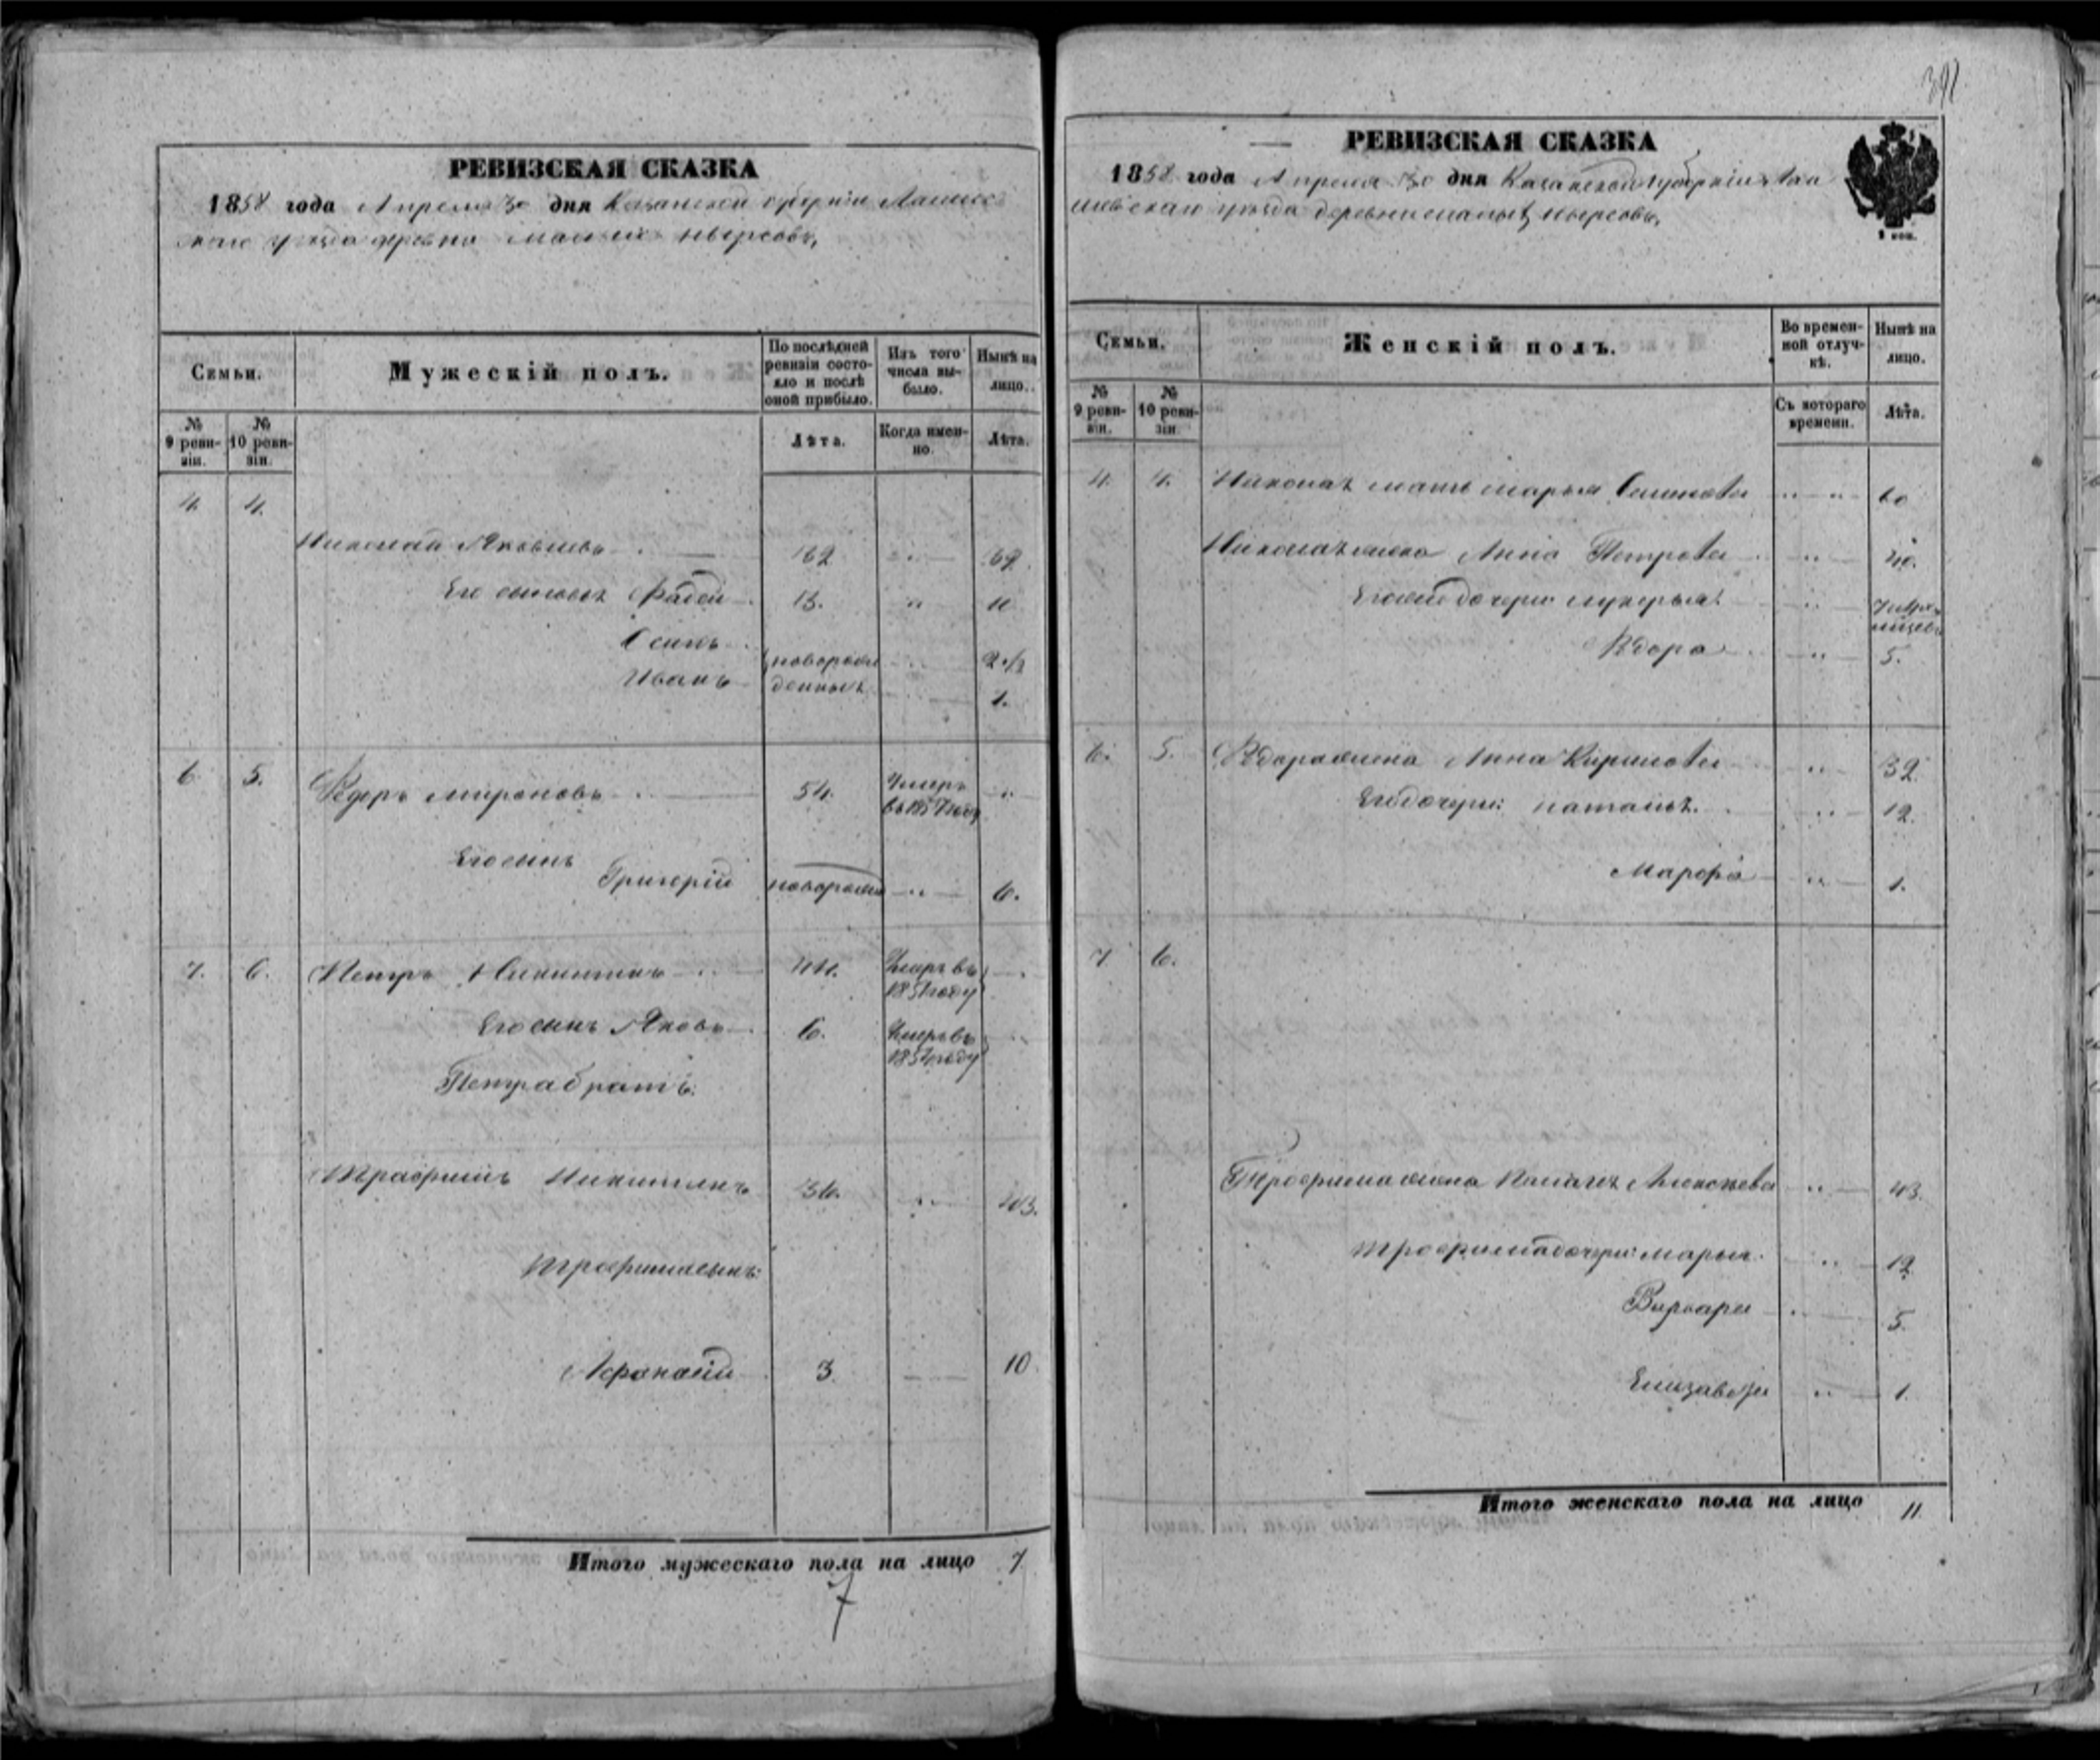 РЕВИЗСКАЯ СКАЗКА
1858 года Апреля 30 дня Казанской губернiи Лаишев
скаго уезда деревни малыхъ Нырсовъ,
Семьи.
Мужескiй полъ.
По послѣдней ревизiи состояло и послѣ оной прибыло.
Изъ того числа выбыло.
Нынѣ на лицо.
№ 9 ревизiи.
№ 10 ревизiи.
Лѣта.
Когда именно.
Лѣта.
4. 4.
Николай Яковлевъ 69.
Его сыновья Фадей 13. 11
Осипъ новорож 2 1/2
Иванъ денные 1.
6 5. Ѳедоръ мироновъ 54. Умеръ
въ 1857 году
Его сынъ
Григорiй новорожд 6.
7. 6. Петръ Никитинъ 44. Умеръ въ
185 году
Его сынъ Яковъ 6. Умеръ въ
1854 году
Петра братъ:
Трафимъ Никитинъ 36. 43.
Трофима сынъ:
Афанасiй 3. 10
Итого мужескаго пола на лицо 7.
7
РЕВИЗСКАЯ СКАЗКА
1858 года Апреля 30 дня Казанской губернiи Лаи
шевскаго уезда деревни малыхъ Нырсовъ,
1 коп.
Семьи.
Женскiй полъ.
Во временной отлучкѣ.
Нынѣ на лицо.
№ 9 ревизiи.
№ 10 ревизiи.
Съ котораго времени.
Лѣта.
4. 4. мать марья 60
жена Анна Петрова 40.
дочери лукерья
5.
6. 5. жена Анна Кирилова 32.
Его дочери: наталья. 12.
Марфа 1.
7 6.
Трофима жена Алексѣева 43.
Трофима дочери: марья. 12.
Варвара 5.
Елизавета 1.
Итого женскаго пола на лицо 11.